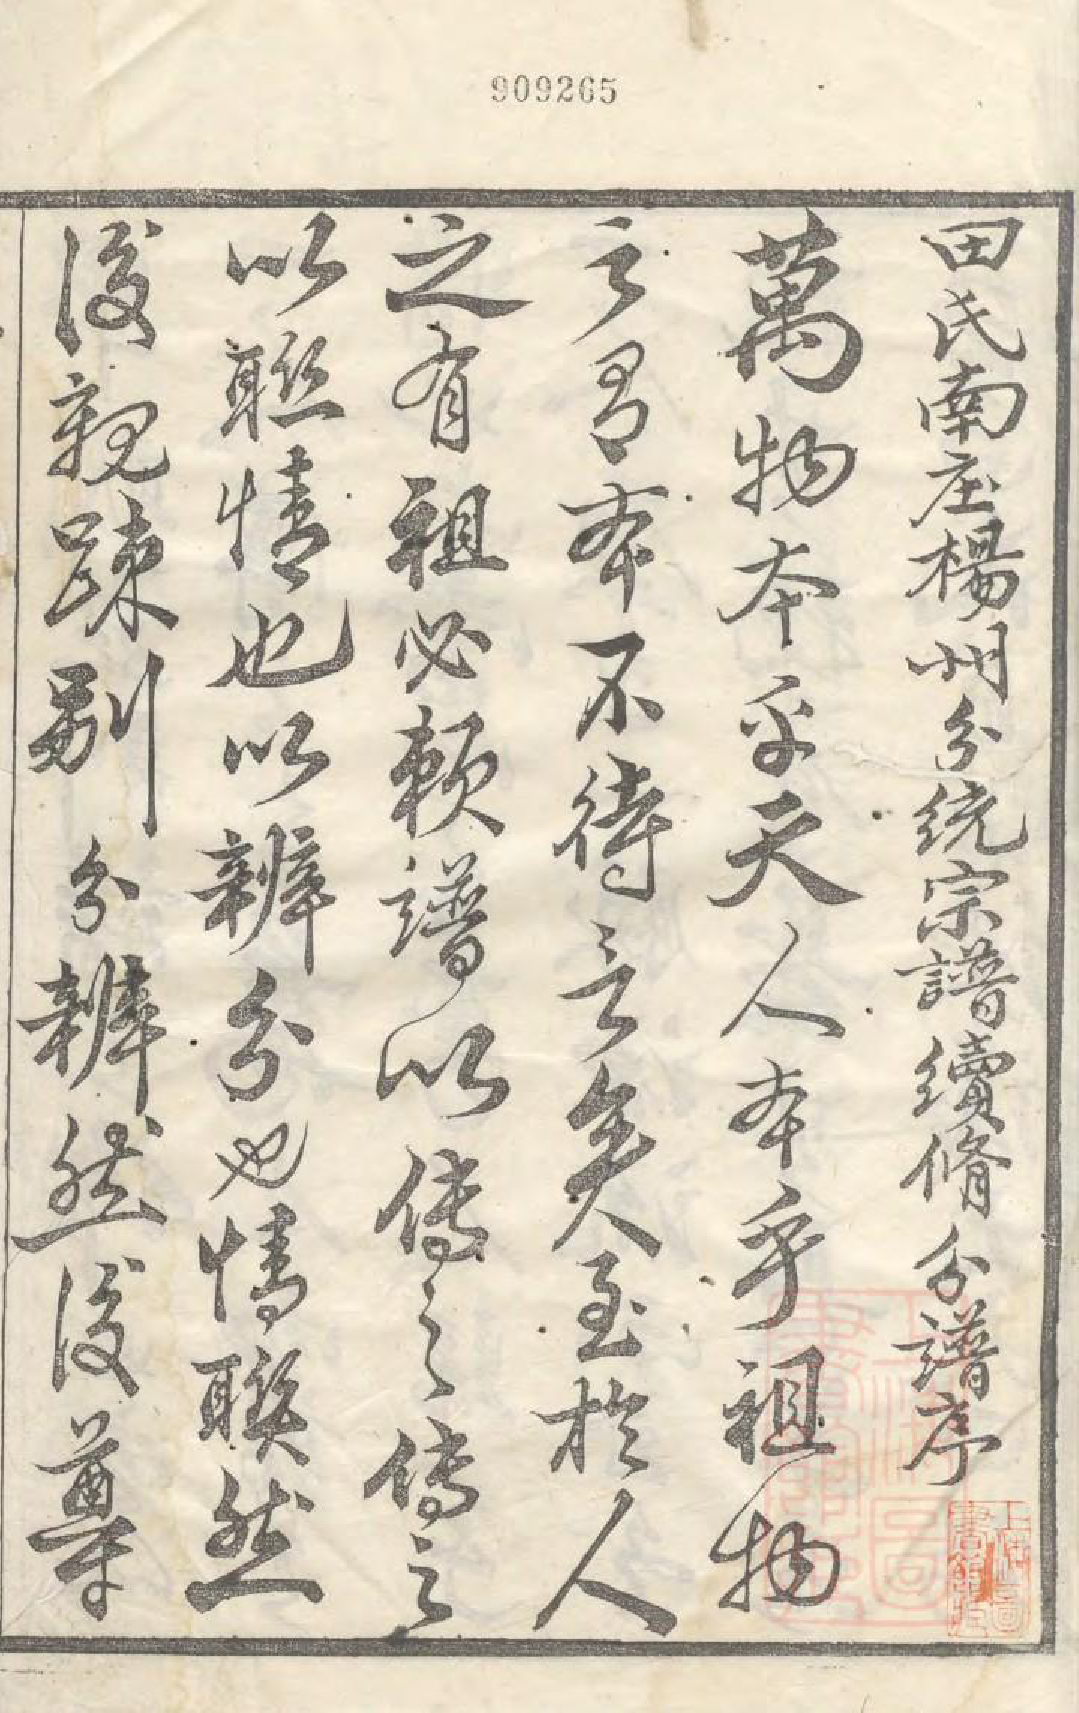 909265
田氏南庄楊州分統宗譜續脩分譜序
萬物本乎天人本乎祖物
之有本不待言矣至於人
之有祖必賴譜以傳之傳之
以聯情也以辨分也情聯然
後親踈別分辨然後尊
上海圖書館藏